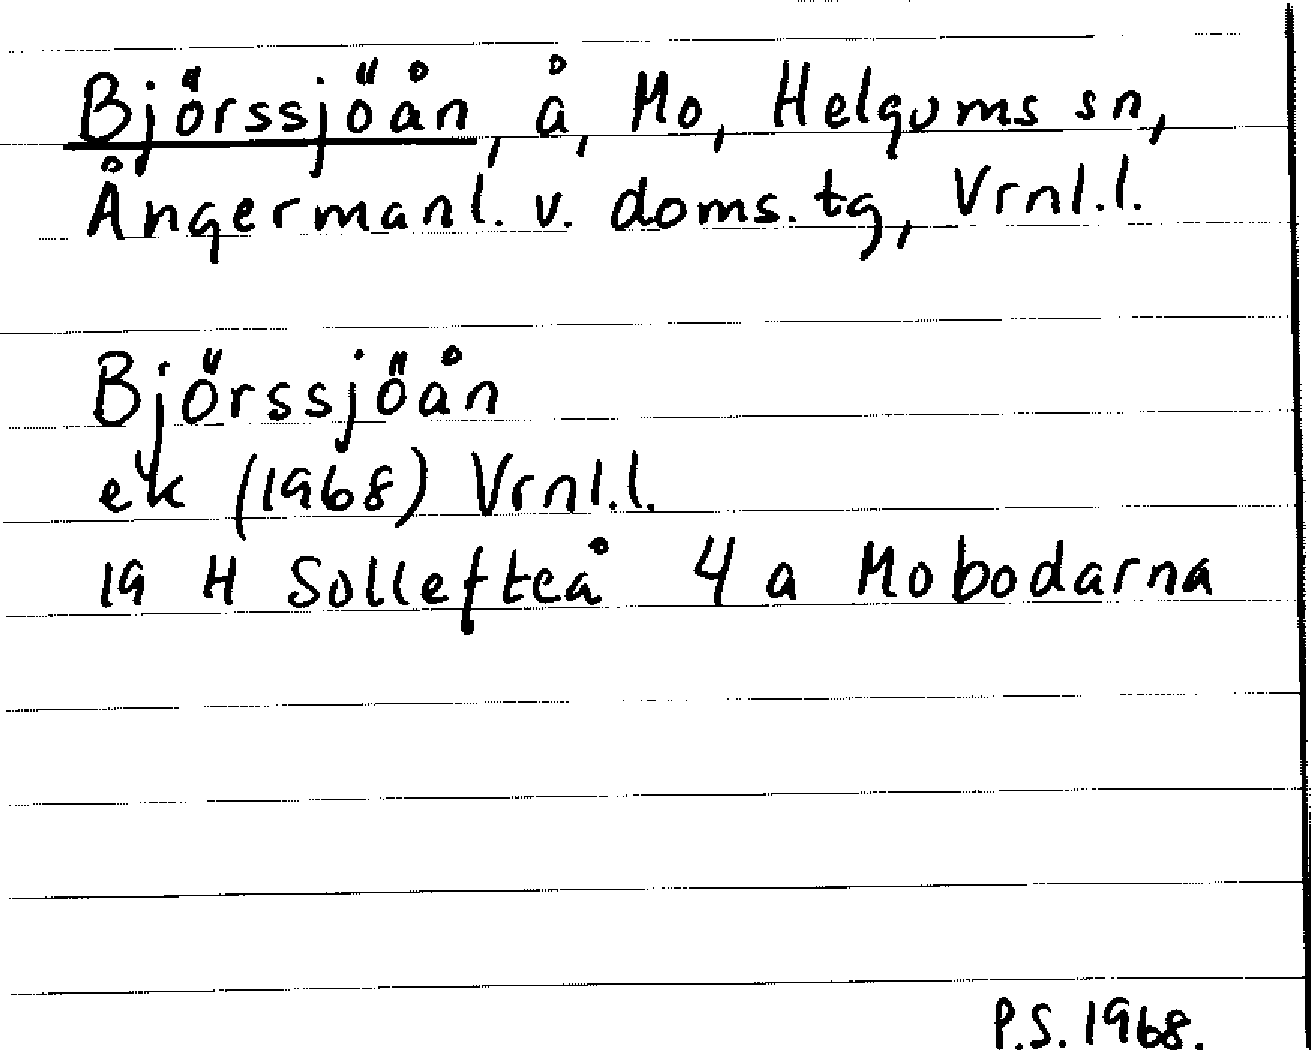 Björssjöån, å, Mo, Helgums sn,
Ångermanl. v. doms. tg, Vrnl.l.
Björssjöån
ek (1968) Vrnl.l.
19 H Sollefteå 4 a Mobodarna
P.S. 1968.